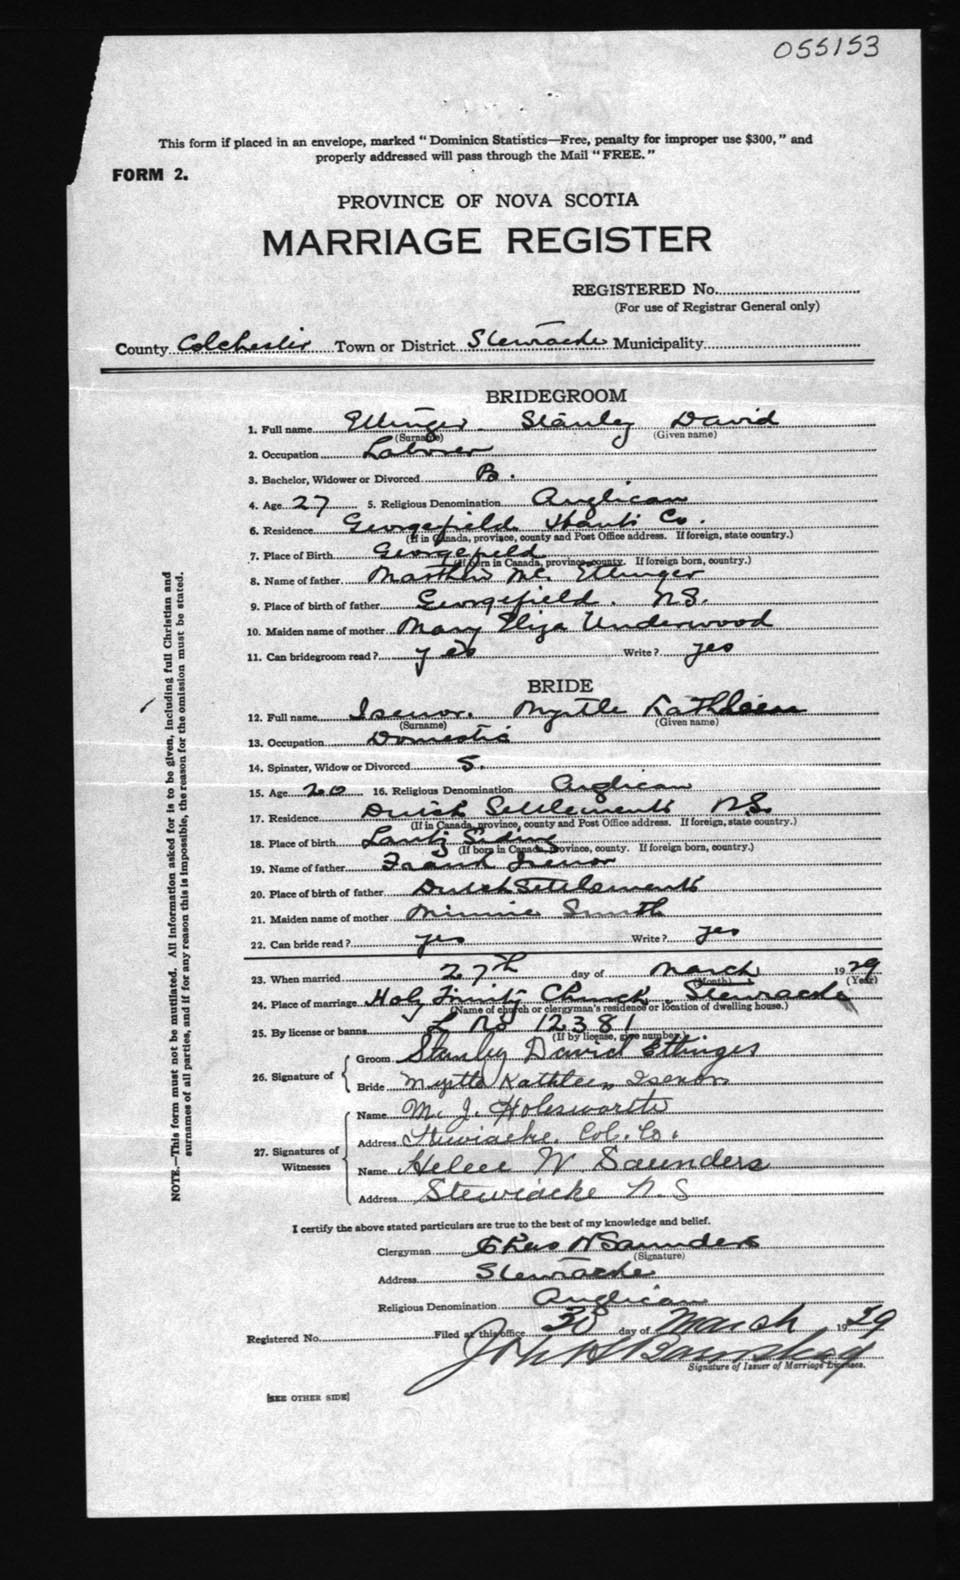 055153
This form if placed in an envelope, marked "Dominion Statistics—Free, penalty for improper use $300," and
properly addressed will pass through the Mail "FREE."
FORM 2.
PROVINCE OF NOVA SCOTIA
MARRIAGE REGISTER
REGISTERED No.
(For use of Registrar General only)
County Colchester Town or District Stewiacke Municipality
BRIDEGROOM
1. Full name Ettinger Stanley David
(Surname) (Given name)
2. Occupation Laborer
3. Bachelor, Widower or Divorced B.
4. Age 27 5. Religious Denomination Anglican
6. Residence Georgefield Hants Co.
(If in Canada, province, county and Post Office address. If foreign, state country.)
7. Place of Birth Georgefield
(If born in Canada, province, county. If foreign born, country.)
8. Name of father Matthew Mc. Ettinger
9. Place of birth of father Georgefield. N.S.
10. Maiden name of mother Mary Eliza Underwood
11. Can bridegroom read? yes Write? yes
BRIDE
12. Full name Isenor. Myrtle Kathleen
(Surname) (Given name)
13. Occupation Domestic
14. Spinster, Widow or Divorced S.
15. Age 20 16. Religious Denomination Anglican
17. Residence Dutch Settlement N.S.
(If in Canada, province, county and Post Office address. If foreign, state country.)
18. Place of birth Lantz Siding
(If born in Canada, province, county. If foreign born, country.)
19. Name of father Frank Isenor
20. Place of birth of father Dutch Settlement
21. Maiden name of mother Minnie Smith
22. Can bride read? yes Write? yes
23. When married 27th day of March 1929
(Month) (Year)
24. Place of marriage Holy Trinity Church. Stewiacke
(Name of church or clergyman's residence or location of dwelling house.)
25. By license or banns L No 12381
(If by license, give number.)
26. Signature of
Groom Stanley David Ettinger
Bride Myrtle Kathleen Isenor
27. Signatures of Witnesses
Name M. J. Holesworth
Address Stewiacke. Col. Co.
Name Helen W. Saunders
Address Stewiacke N.S
I certify the above stated particulars are true to the best of my knowledge and belief.
Clergyman Saunders
(Signature)
Address Stewiacke
Religious Denomination Anglican
Registered No. Filed at this office 30 day of March 1929
John
Signature of Issuer of Marriage Licenses.
[SEE OTHER SIDE]
NOTE.—This form must not be mutilated. All information asked for is to be given, including full Christian and
surnames of all parties, and if for any reason this is impossible, the reason for the omission must be stated.